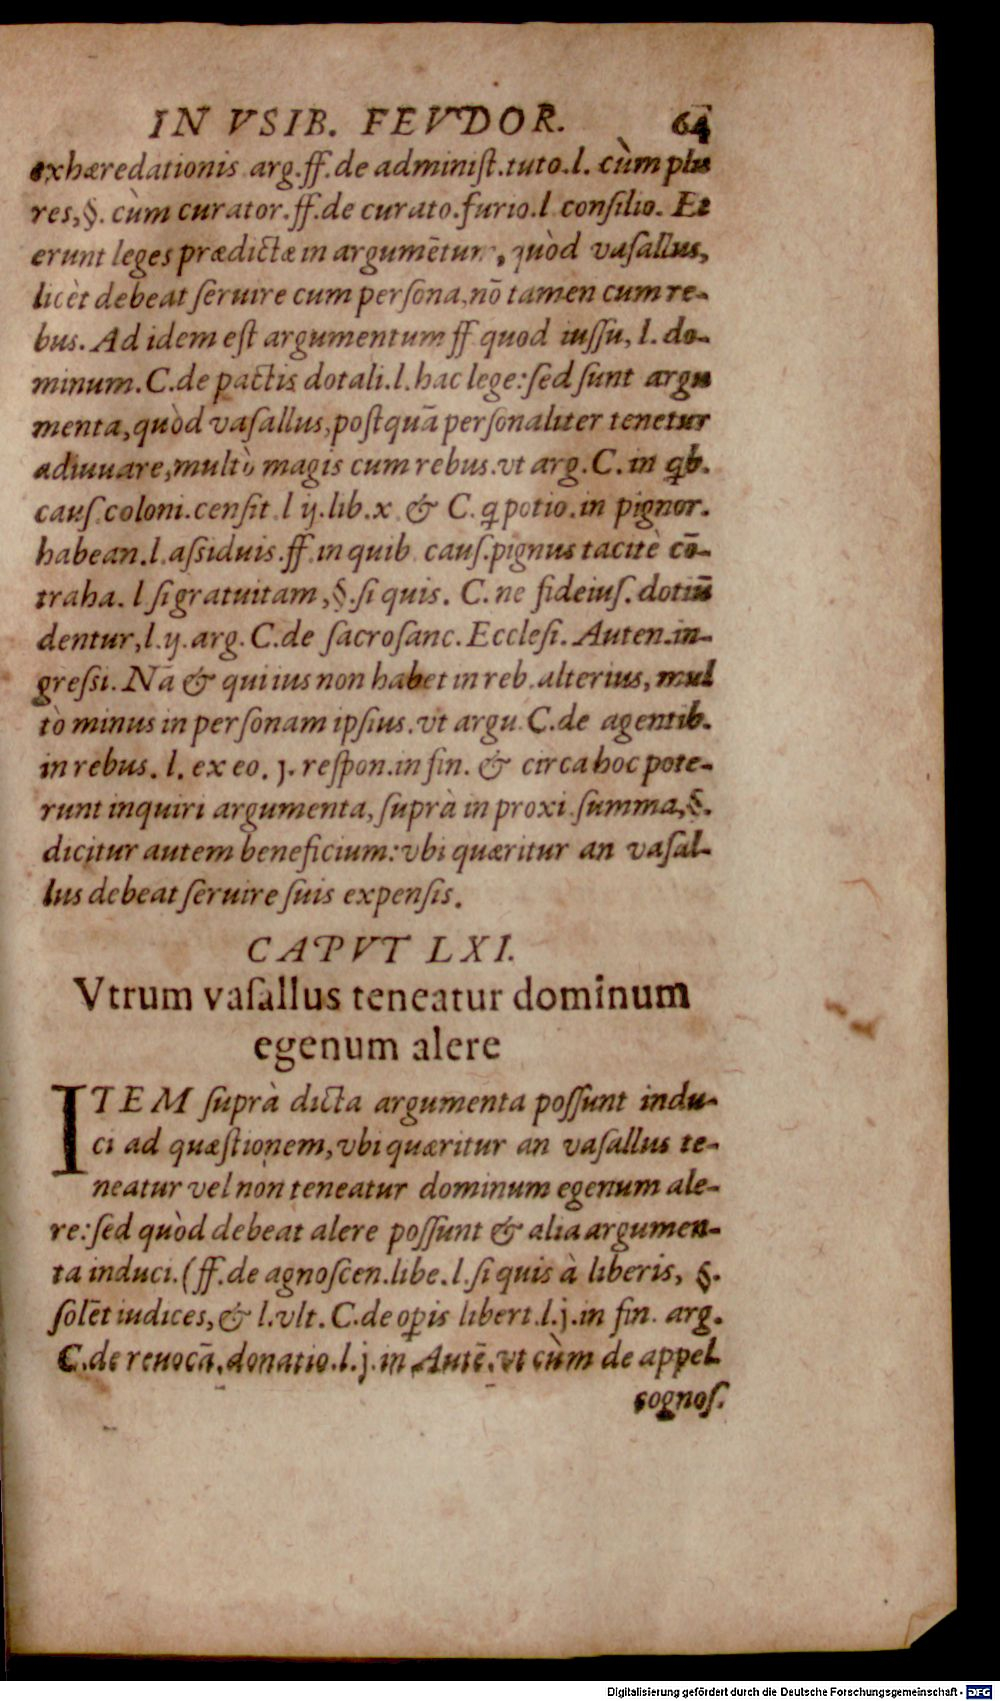 IN VSIB. FEVDOR. 64
exhæredationis arg.ff.de administ.tuto.l. cùm plu
res,§. cùm curator.ff.de curato.furio.l consilio. Et
erunt leges prædictæ in argumētum, quòd vasallus,
licèt debeat seruire cum persona,nō tamen cum re-
bus. Ad idem est argumentum ff quod iussu, l. do-
minum. C.de pactis dotali.l.hac lege:sed sunt argu
menta,quòd vasallus,postquā personaliter tenetur
adiuuare,multò magis cum rebus.vt arg.C. in qb.
caus.coloni.censit l ij.lib.x & C. q potio.in pignor.
habean.l.assiduis.ff in quib caus.pignus tacitè cō-
traha. l si gratuitam,§.si quis. C. ne fideius.dotiū
dentur,l.ij.arg.C.de sacrosanc.Ecclesi. Auten.in-
gressi. Nā & qui ius non habet in reb.alterius, mul
tò minus in personam ipsius.vt argu C.de agentib.
in rebus. l. ex eo. j. respon.in fin. & circa hoc pote-
runt inquiri argumenta, suprà in proxi summa,§.
dicitur autem beneficium:vbi quæritur an vasal-
lus debeat seruire suis expensis.
CAPVT LXI.
Vtrum vasallus teneatur dominum
egenum alere
ITEM suprà dicta argumenta possunt indu-
ci ad quæstionem,vbi quæritur an vasallus te-
neatur vel non teneatur dominum egenum ale-
re:sed quòd debeat alere possunt & alia argumen-
ta induci.(ff.de agnoscen.libe.l.si quis à liberis, §.
solēt iudices,& l.vlt. C.de opis libert.l.j.in fin. arg.
C.de reuocā.donatio.l.j.in Autē.vt cùm de appel
cognos.
Digitalisierung gefördert durch die Deutsche Forschungsgemeinschaft - DFG